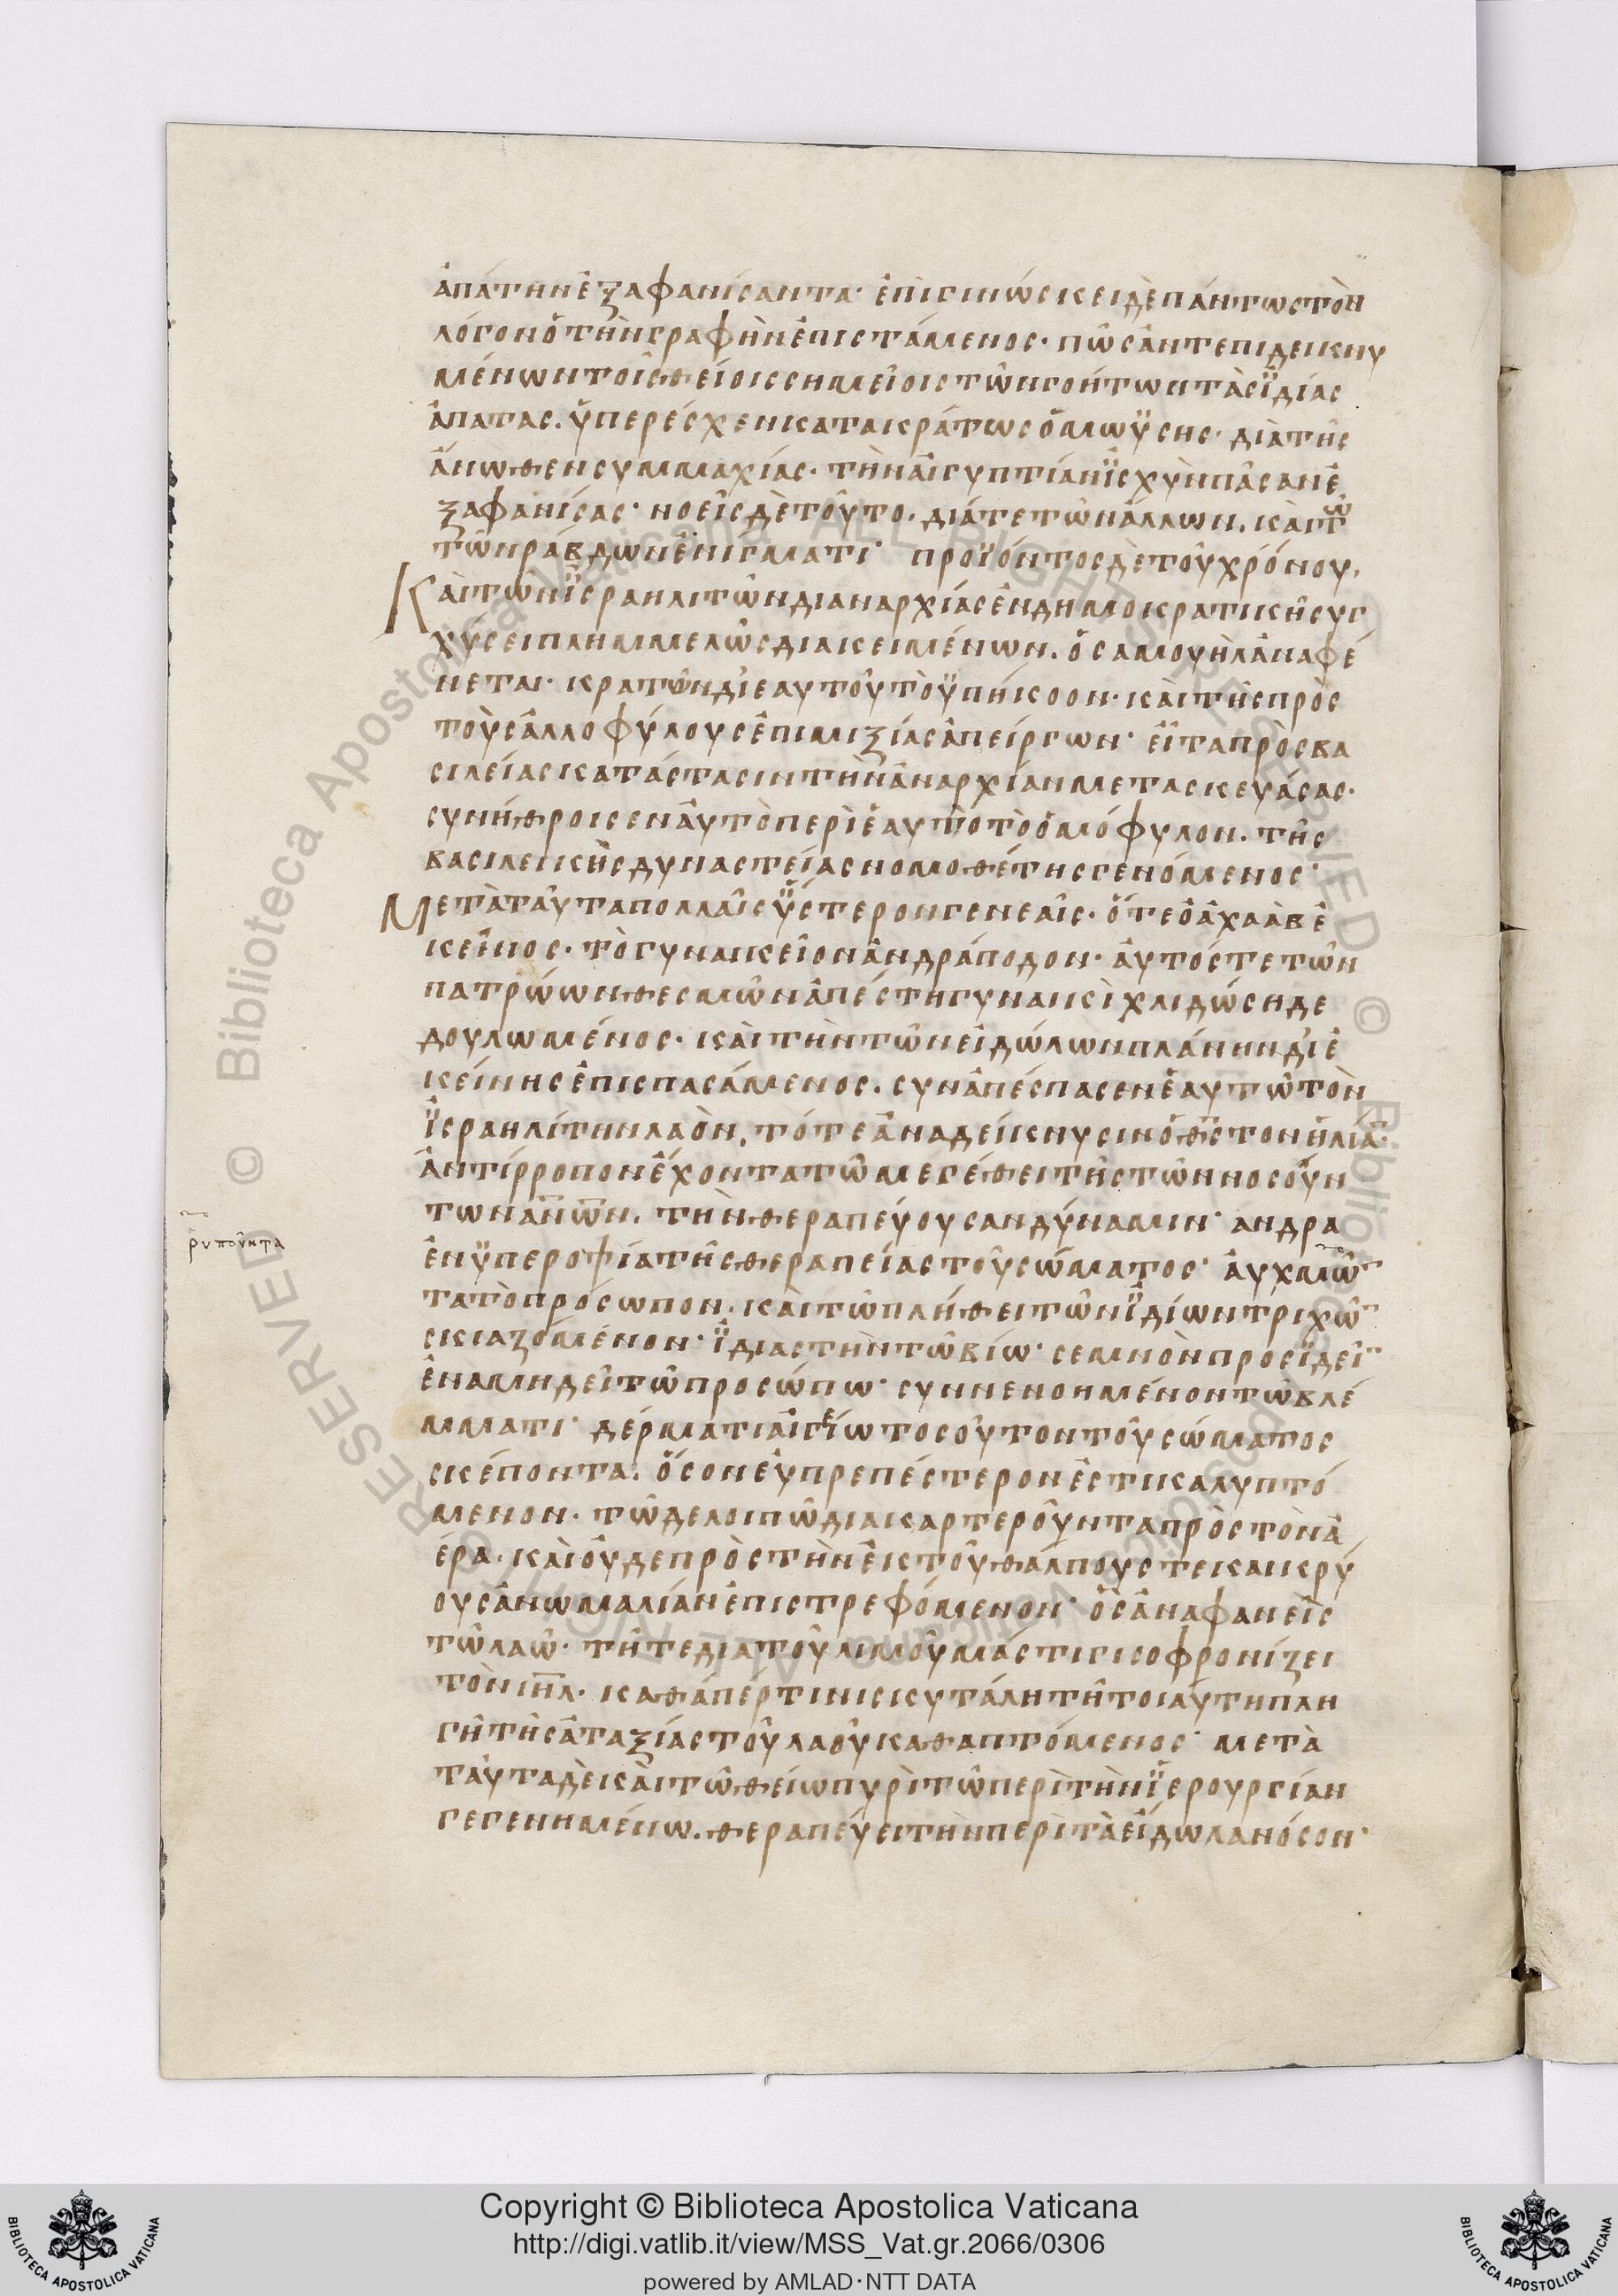 ἀπάτην ἐξαφανίσαντα· ἐπιγινώσκει δὲ πάντως τὸν
λόγον ὁ τὴν γραφὴν ἐπιστάμενος· πῶς ἀντεπιδεικνυ
μένων τοῖς θείοις σημείοις τῶν γοήτων τὰς ϊδίας
ἀπατας. ϋπερέσχεν κατακράτως ὁ μωϋσης· διὰ τῆς
ἄνωθεν συμμαχίας· τὴν αἰγυπτίαν ϊσχὺν πᾶσαν ἐ
ξαφανίσας· νοεῖς δὲ τοῦτο. διά τε τῶν ἄλλων. καὶ τῶ
τῶν ράβδων ἐνίγματι· προϊόντος δὲ τοῦ χρόνου,
Καὶ τῶν ϊσραηλιτῶν δι αναρχίας ἐν δημοκρατικῆ συγ
χύσει πλημμελῶς διακειμένων. ὁ σαμουὴλ ἀναφέ
νεται· κρατῶν δι εαυτοῦ τὸ ϋπήκοον· καὶ τῆς πρὸς
τοὺς ἀλλοφύλους ἐπιμιξίας ἀπείργων· εἶτα πρὸς βα
σιλείας κατάστασιν τὴν ἀναρχίαν μετασκευάσας·
συνήθροισεν ἀυτὸ περὶ ἑαυτὸ τὸ ὁμόφυλον. τῆς
βασιλεικῆς δυναστείας νομοθέτης γενόμενος·
Μετὰ ταῦτα πολλαῖς ϋστερον γενεαῖς. ὅτε ὁ ἀχαὰβ ἐ
κεῖνος· τὸ γυναικεῖον ἀνδράποδον· ἀυτός τε τῶν
πατρώων θεσμῶν ἀπέστη γυναικὶ χλιδώση δε
δουλωμένος· καὶ τὴν τῶν εἰδώλων πλάνην δι ἐ
κείνης ἐπισπασάμενος. συναπέσπασεν ἑαυτῶ τὸν
ϊσραηλίτην λαὸν, τότε ἀναδείκνυσιν ὁ θς τον ἠλία
ἀντίρροπον ἔχοντα τῶ μεγέθει τῆς τῶν νοσούν
των ανων. τὴν θεραπεύουσαν δύναμιν· ανδρα
ἐν ϋπεροψία τῆς θεραπείας τοῦ σώματος· ἀυχμῶ
τα τὸ πρόσωπον. καὶ τῶ πλήθει τῶν ϊδίων τριχῶ
σκιαζόμενον· ϊδιαστὴν τῶ βίω· σεμνὸν προσϊδεῖ
ἐν αμηδεῖ τῶ προσώπω· συννενοημένον τῶ βλέ
μματι· δέρματι αἰγείω τοσοῦτον τοῦ σώματος
σκέποντα. ὅσον εὐπρεπέστερον ἐστι καλυπτό
μενον· τῶ δε λοιπῶ διακαρτεροῦντα πρὸς τὸν ἀ
έρα· καὶ οὐδε πρὸς τὴν ἐκ τοῦ θάλπους τε και κρύ
ους ἀνωμαλίαν ἐπιστρεφόμενον· ὃς ἀναφανεὶς
τῶ λαῶ· τῆ τε δια τοῦ λιμοῦ μάστιγι σοφρονίζει
τὸν ιηλ. καθάπερ τινι σκυτάλη τῆ τοιαύτη πλη
γῆ τῆς ἀταξίας τοῦ λαοῦ καθαπτόμενος· μετὰ
ταῦτα δὲ καὶ τῶ θείω πυρὶ τῶ περὶ τὴν ϊερουργίαν
γεγενημένω. θεραπεύει τὴν περὶ τὰ εἴδωλα νόσον·
ῥυποῦντα
Copyright © Biblioteca Apostolica Vaticana
http://digi.vatlib.it/view/MSS_Vat.gr.2066/0306
powered by AMLAD·NTT DATA
BIBLIOTECA APOSTOLICA VATICANA
BIBLIOTECA APOSTOLICA VATICANA